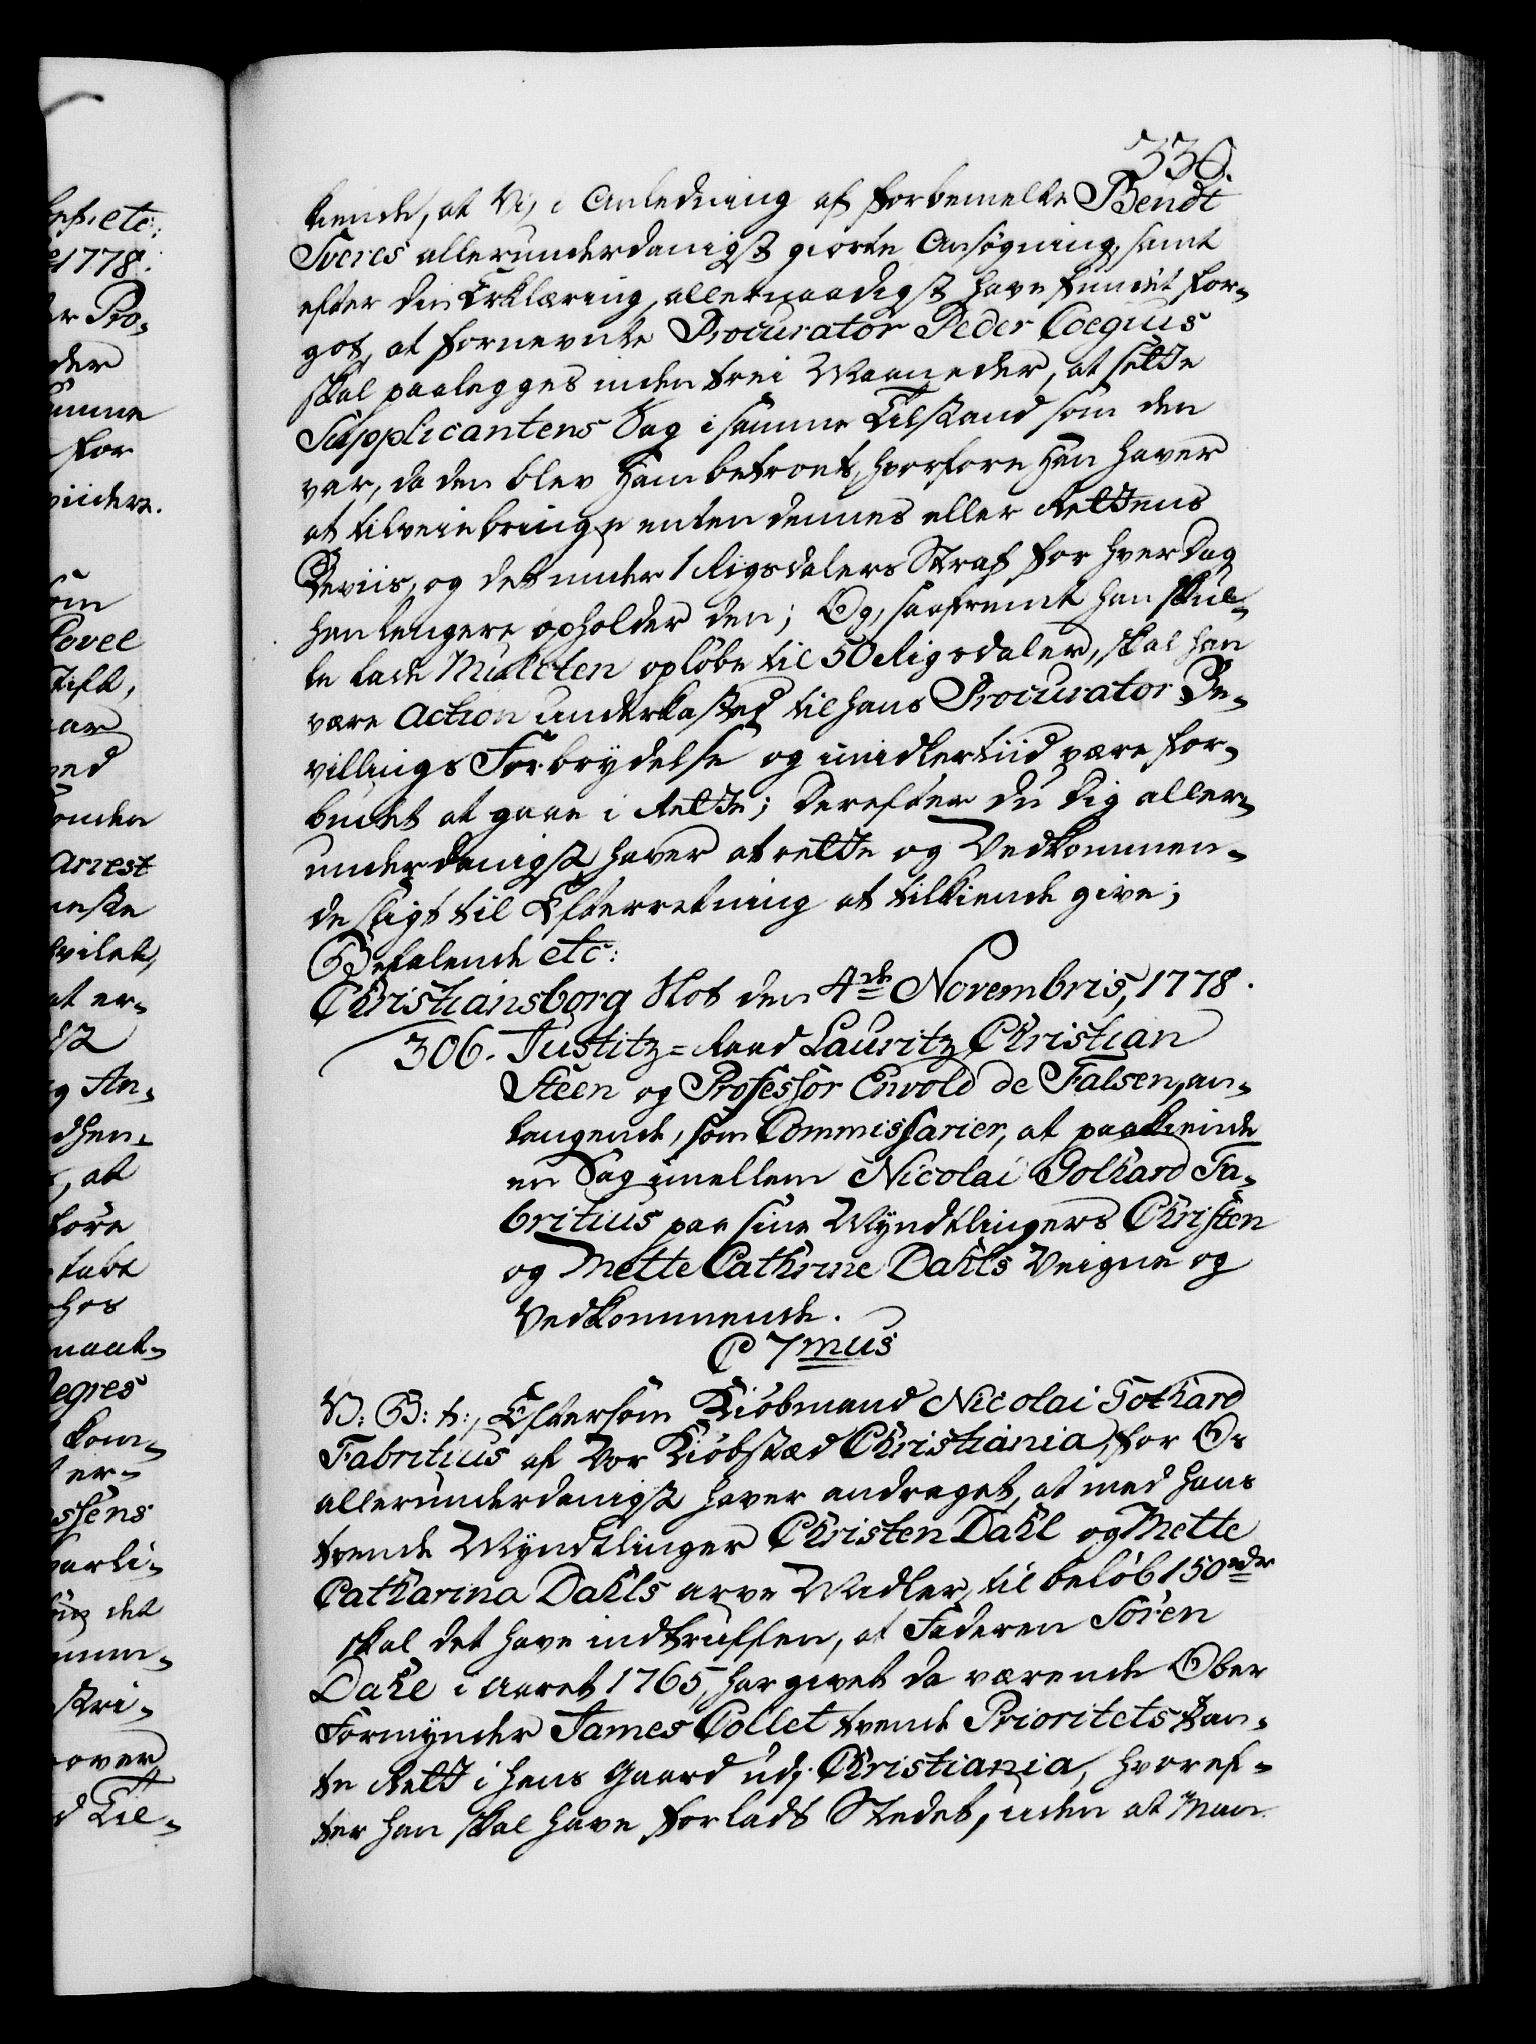 330.
kiende, at Vi, i Anledning af forbemelte Bendt
Sveres allerunderdanigst giorte Ansøgning, samt
efter din Erklæring, allernaadigst have fundet for-
got, at fornevnte Procurator Peder Coegius
skal paalegges inden trei Maaneder, at sette
Supplicantens Sag i samme Tilstand som den
var, da den blev ham betroet, hvorfore han haver
at tilveiebringe enten dennes eller Rettens
Beviis, og det under 1 Rigsdalers Straf for hver Dag
han lengere opholder den; Og, saafremt han skul-
le lade Mulcten opløbe til 50 Rigsdaler, skal han
være Action underkasted til hans Procurator Be-
villings Forbrydelse og imidlertiid være for-
budet at gaae i Rette; Derefter du dig aller-
underdanigst haver at rette og Vedkommen-
de sligt til Efterretning at tilkiende give;
Befalende etc:
Christiansborg Slot den 4de Novembris, 1778.
306. Justitz=Raad Lauritz Christian
Steen og Professor Envold de Falsen, an-
langende, som Commissarier, at paakiende
en Sag imellem Nicolai Gothard Fa-
britius paa sine Myndtlingers Christen
og Mette Cathrine Dahls Veigne og
Vedkommende.
C 7mus
V: G: t:, Eftersom Kiøbmand Nicolai Gothard
Fabritius af Vor Kiøbstæd Christiania, for Os
allerunderdanigst haver andraget, at med hans
tvende Myndtlinger Christen Dahl og Mette
Catharina Dahls arve Midler, til beløb 150 rdr
skal det have indtruffen, at Faderen Søren
Dahl i Aaret 1765, har givet da værende Ober
Formynder James Collet tvende Prioritets Pan-
te Rett i hans Gaard udj Christiania, hvoref-
ter han skal have forladt Stedet, uden at Man